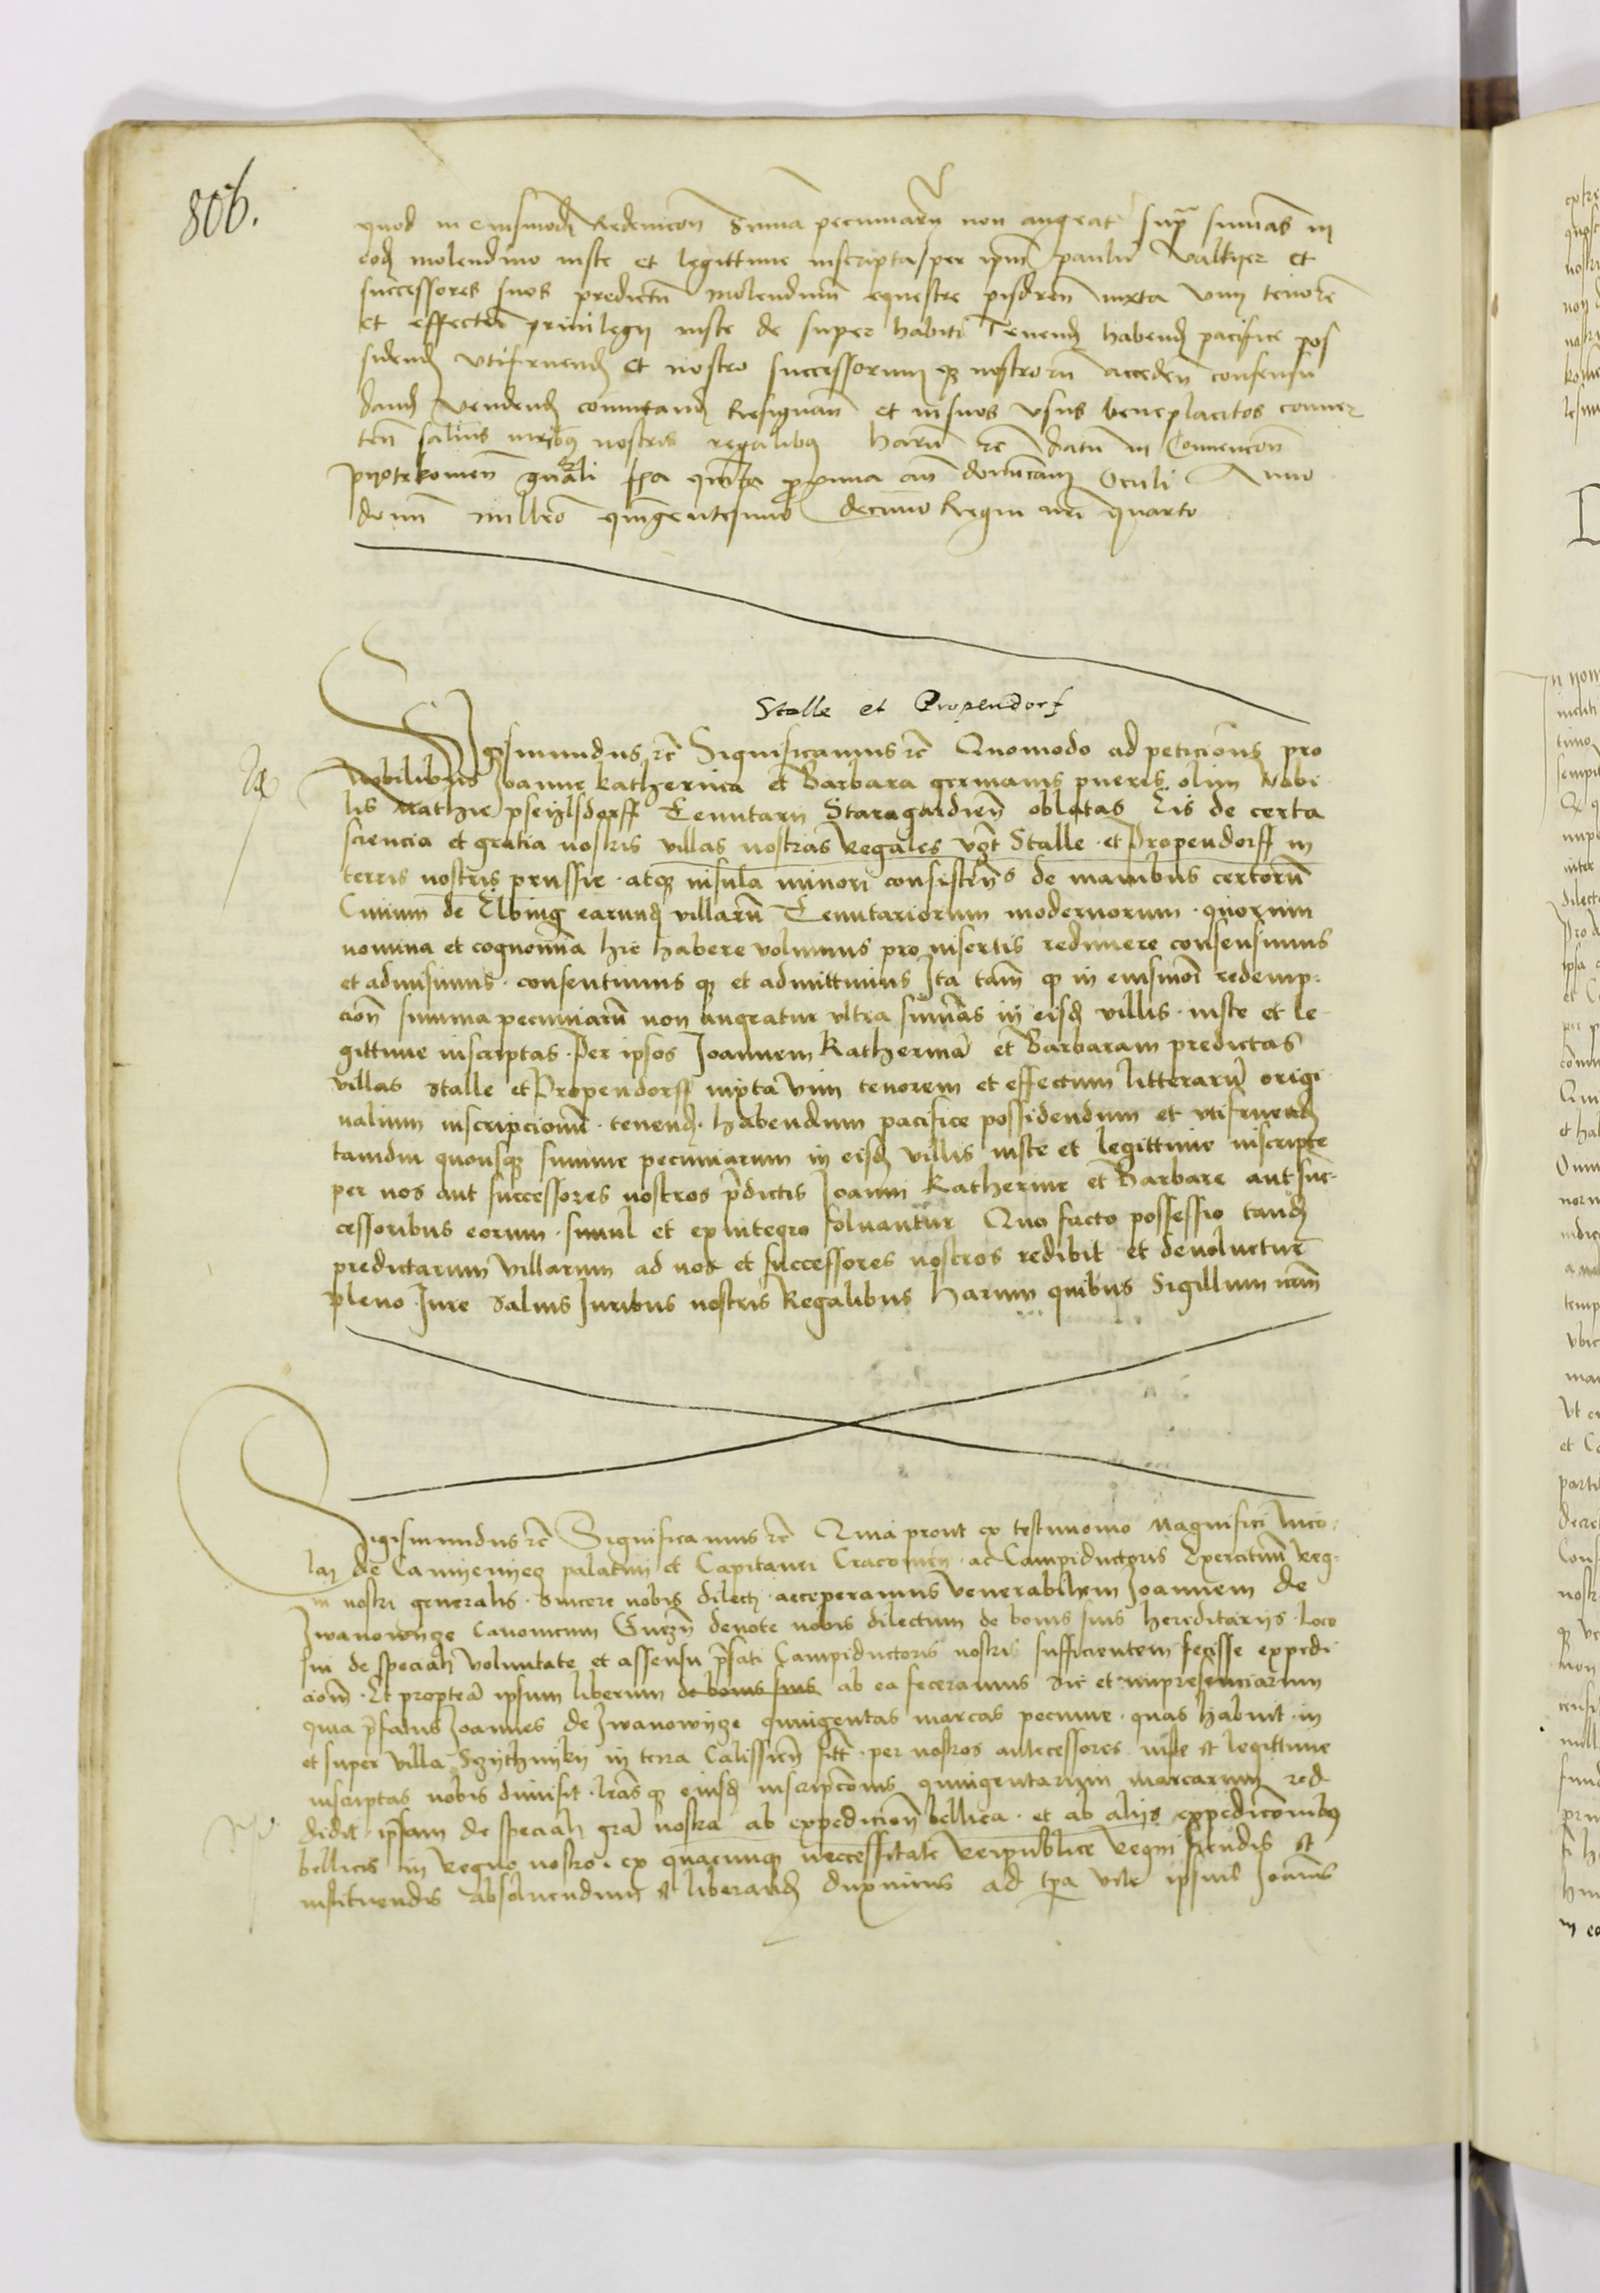 806.
quod in eiusmodi Redempcion Summa pecuniarum non augeat supra summas in
eod molendino iuste et legittime inscripta per ipm paulu Valkyer et
successores suos predictum molendinum equestre pisdren iuxta vim tenore
et effectum privilegy iuste de super habiti Tenend habend pacifice pos
sidend utifruend et nostro successorumq nostroru acceden consensu
dand vendend comutand Resignan et in suos usus beneplacitos conver
ten salvis iuribus nostris regalibus Harum etc datum in Convencion
pyotrkowien gnali fra quinta proxima an dominicam Oculi Anno
domini millmo quingentesimo decimo Regni nri quarto
Stalle et Propendorf
Sigismundus etc Significamus etc Quomodo ad peticiones pro
Nobilibus Joanne Katherina et Barbara germanis pueris olim Nobi
lis Mathie pseylsdorff Tenutary Staragardien oblatas Eis de certa
sciencia et gratia nostris villas nostras Regales vdt Stalle et Propendorff in
terris nostris prussie atq insula minori consisten de manibus certorum
Civium de Elbing earund villaru Tenutariorum modernorum quorum
nomina et cognomina hic habere volumus pro insertis redimere consensimus
et admisimus consentimus q et admittimus Ita tam q in eiusmoi redemp
cion summa pecuniaru non augeatur ultra summas in eisd villis iuste et le
gittime inscriptas Per ipsos Joannem Katherina et Barbaram predictas
villas Stalle et Propendorff iuxta vim tenorem et effectum litteraru origi
nalium inscripcionu tenend habendum pacifice possidendum et utifruend
tamdiu quousq summe pecuniarum in eisd villis iuste et legittime inscripte
per nos aut successores nostros pdictis Joanni Katherine et Barbare aut suc
cessoribus eorum simul et ex integro solvantur Quo facto possessio tand
predictarum villarum ad nos et successores nostros redibit et devolvetur
pleno Jure Salvis Juribus nostris Regalibus Harum quibus Sigillum nrm
Sigismundus etc Significamus etc Quia prout ex testimonio Magnifici Nico
lai de Camyenyecz palatini et Capitanei Cracovien ac Campiductoris Exercituu Reg
ni nostri generalis Sincere nobis dilecti acceperamus venerabilem Joannem de
Jwanowycze Canonicum Gnezn devote nobis dilectum de bonis suis hereditariis loco
sui de speciali voluntate et assensu pfati Campiductoris nostri sufficientem fecisse expedi
cionem Et propterea ipsum liberum de bonis suis ab ea feceramus Sic et inpresenciarum
quia pfatus Joannes de Jwanowycze quingentas marcas pecunie quas habuit in
et super villa Szythnyky in terra Calissien sitt per nostros antecessores iuste et legittime
inscriptas nobis dimisit lras q eiusd inscripcionis quingentarum marcarum red
didit ipsum de speciali gra nostra ab expedicion bellica et ab aliis expedicionibus
bellicis in Regno nostro ex quacunq neccessitate Reipublice Regni fiendis et
instituendis absolvendum et liberand duximus ad tpa vite ipsius Joannis